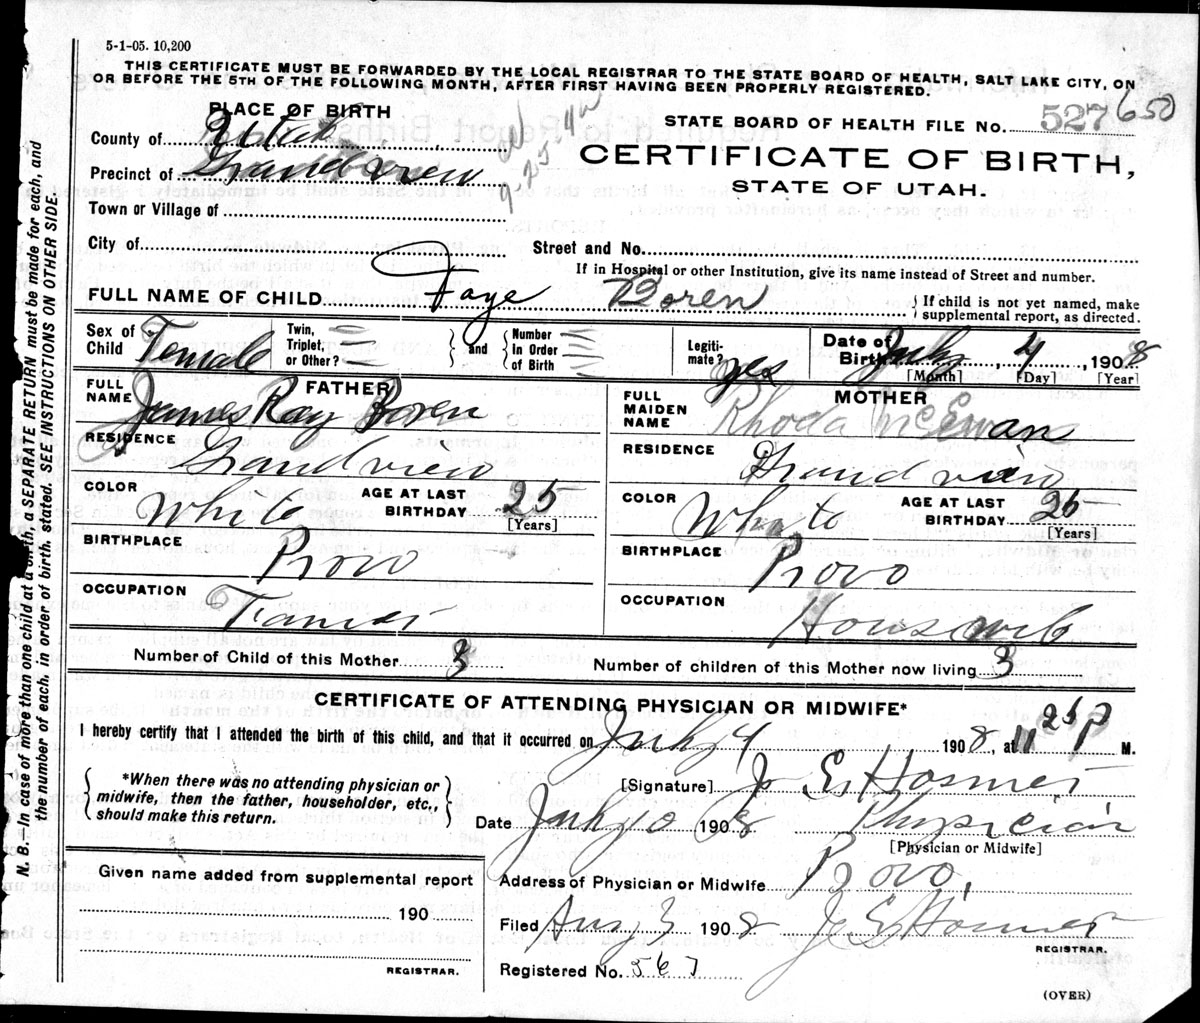 5-1-05. 10,200
THIS CERTIFICATE MUST BE FORWARDED BY THE LOCAL REGISTRAR TO THE STATE BOARD OF HEALTH, SALT LAKE CITY, ON
OR BEFORE THE 5TH OF THE FOLLOWING MONTH, AFTER FIRST HAVING BEEN PROPERLY REGISTERED.
PLACE OF BIRTH
STATE BOARD OF HEALTH FILE No. 527 650
County of Utah
CERTIFICATE OF BIRTH,
Precinct of Grandview
STATE OF UTAH.
Town or Village of
City of Street and No.
If in Hospital or other Institution, give its name instead of Street and number.
FULL NAME OF CHILD Faye Boren { If child is not yet named, make supplemental report, as directed.
Sex of Child Female Twin, Triplet, or Other? { and } Number In Order of Birth Legitimate? yes Date of Birth July 4, 1908
[Month] [Day] [Year]
FATHER
FULL NAME James Ray Boren
RESIDENCE Grandview
COLOR White AGE AT LAST BIRTHDAY 25
[Years]
BIRTHPLACE Provo
OCCUPATION Farmer
MOTHER
FULL MAIDEN NAME Rhoda McEwans
RESIDENCE Grandview
COLOR White AGE AT LAST BIRTHDAY 26
[Years]
BIRTHPLACE Provo
OCCUPATION Housewife
Number of Child of this Mother 3 Number of children of this Mother now living 3
CERTIFICATE OF ATTENDING PHYSICIAN OR MIDWIFE*
I hereby certify that I attended the birth of this child, and that it occurred on July 4 1908, at P M.
{ *When there was no attending physician or midwife, then the father, householder, etc., should make this return. }
[Signature] J. E. Hosmer
Date July 10 1908 Physician
[Physician or Midwife]
Given name added from supplemental report
190
REGISTRAR.
Address of Physician or Midwife Provo,
Filed Aug 3 1908 J. E. Hosmer
REGISTRAR.
Registered No. 567
(OVER)
N. B.—In case of more than one child at a birth, a SEPARATE RETURN must be made for each, and
the number of each, in order of birth, stated. SEE INSTRUCTIONS ON OTHER SIDE.